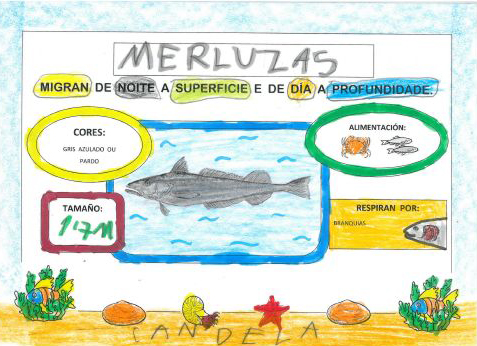 MERLUZAS
MIGRAN DE NOITE A SUPERFICIE E DE DÍA A PROFUNDIDADE.
CORES:
GRIS AZULADO OU
PARDO
ALIMENTACIÓN:
TAMAÑO:
1'7 M
RESPIRAN POR:
BRANQUIAS
CANDELA